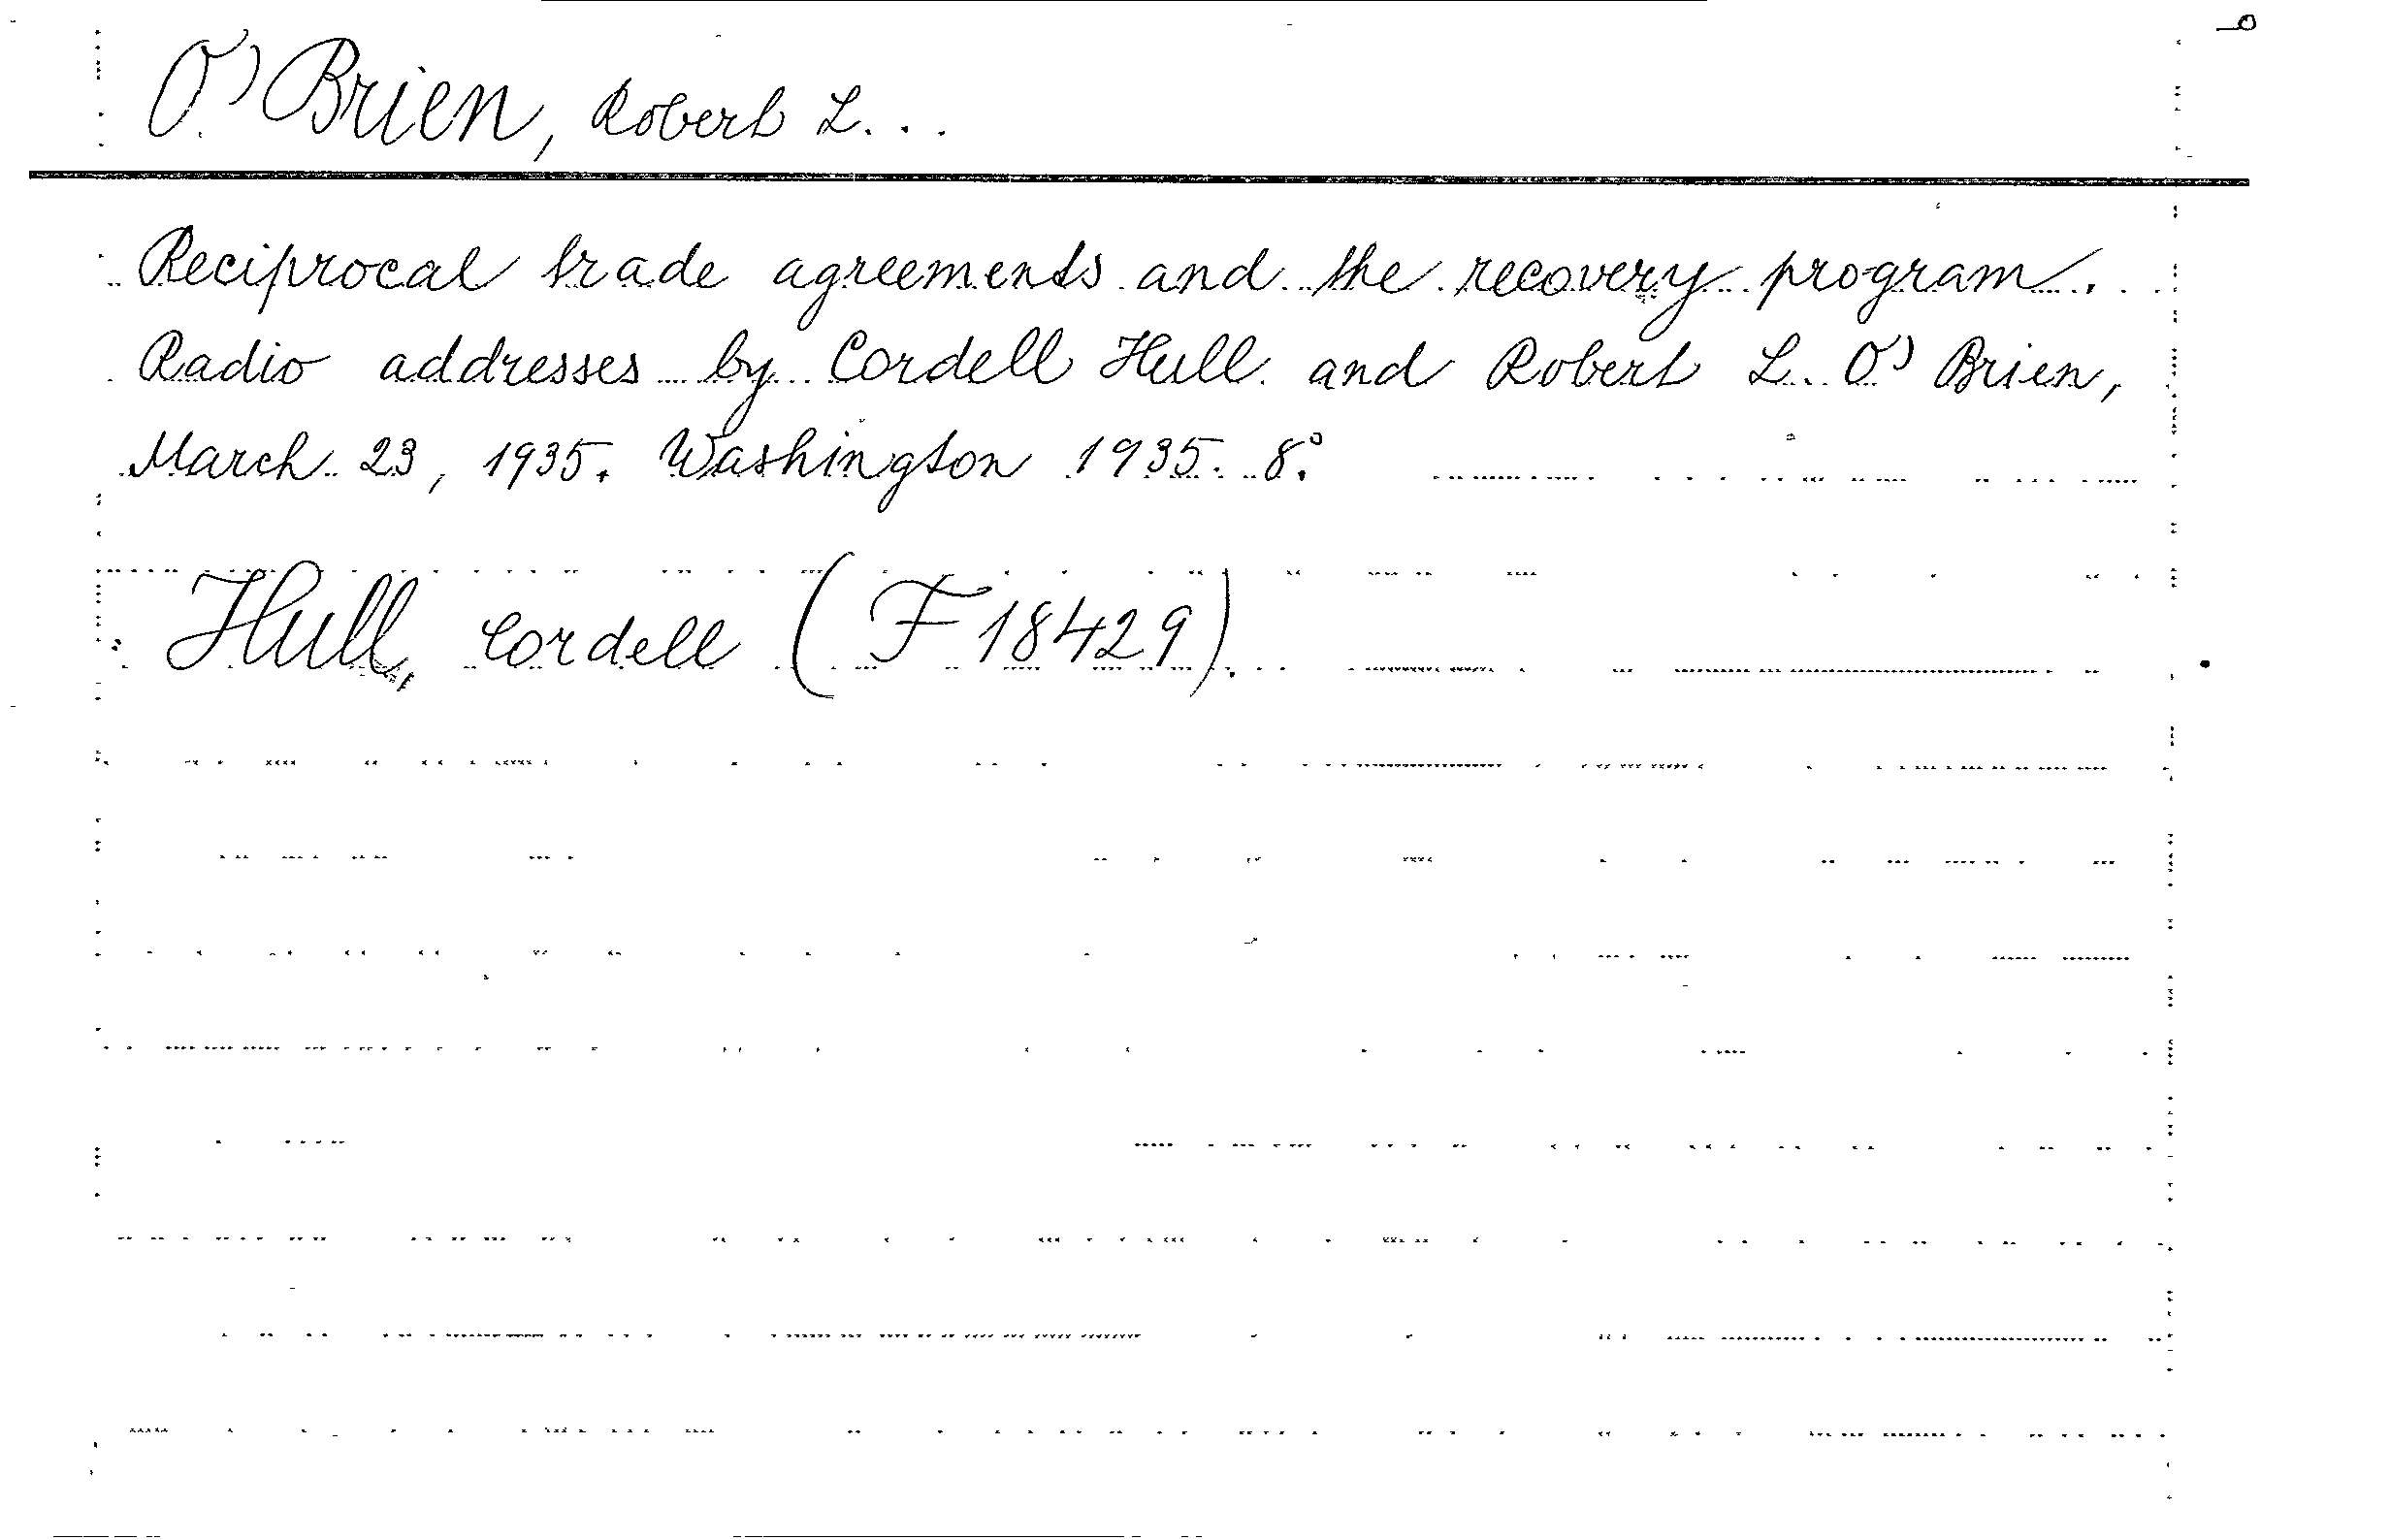 O'Brien, Robert L...
Reciprocal trade agreements and the recovery program.
Radio addresses by Cordell Hull and Robert L. O'Brien,
March 23, 1935. Washington 1935. 8°.
Hull, Cordell (F 18429).